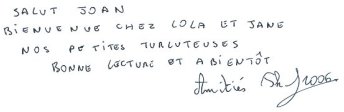 SALUT JOAN
BIENVENUE CHEZ LOLA ET JANE
NOS PETITES TURLUTEUSES
BONNE LECTURE ET A BIENTÔT
Amitiés